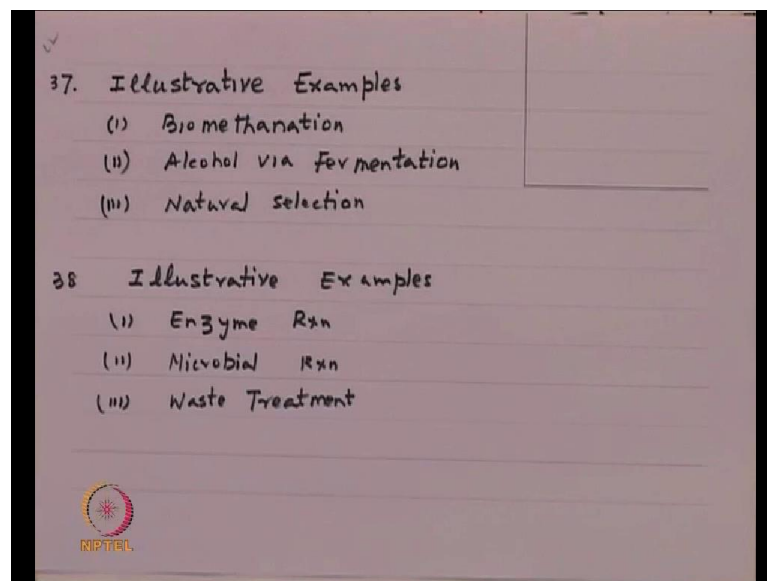 37. Illustrative Examples
(i) Biomethanation
(ii) Alcohol via Fermentation
(iii) Natural selection
38 Illustrative Examples
(i) Enzyme Rxn
(ii) Microbial Rxn
(iii) Waste Treatment
NPTEL